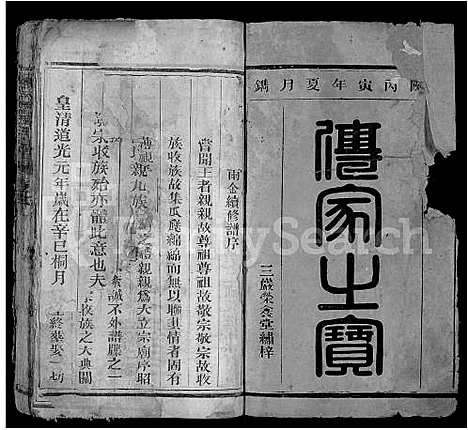 丙寅年夏月鐫
傳家之寶
三嚴榮養堂繡梓
雨金續修譜序
嘗聞王者親親故尊祖尊祖故敬宗敬宗故收
族收族故集瓜瓞綿綿而無以聯其情者固有
親九族
親親為大立宗廟序昭
不外譜牒之一
宗收族殆亦體此意也夫
收族之大典關
皇清道光元年歲在辛巳桐月
FamilySearch